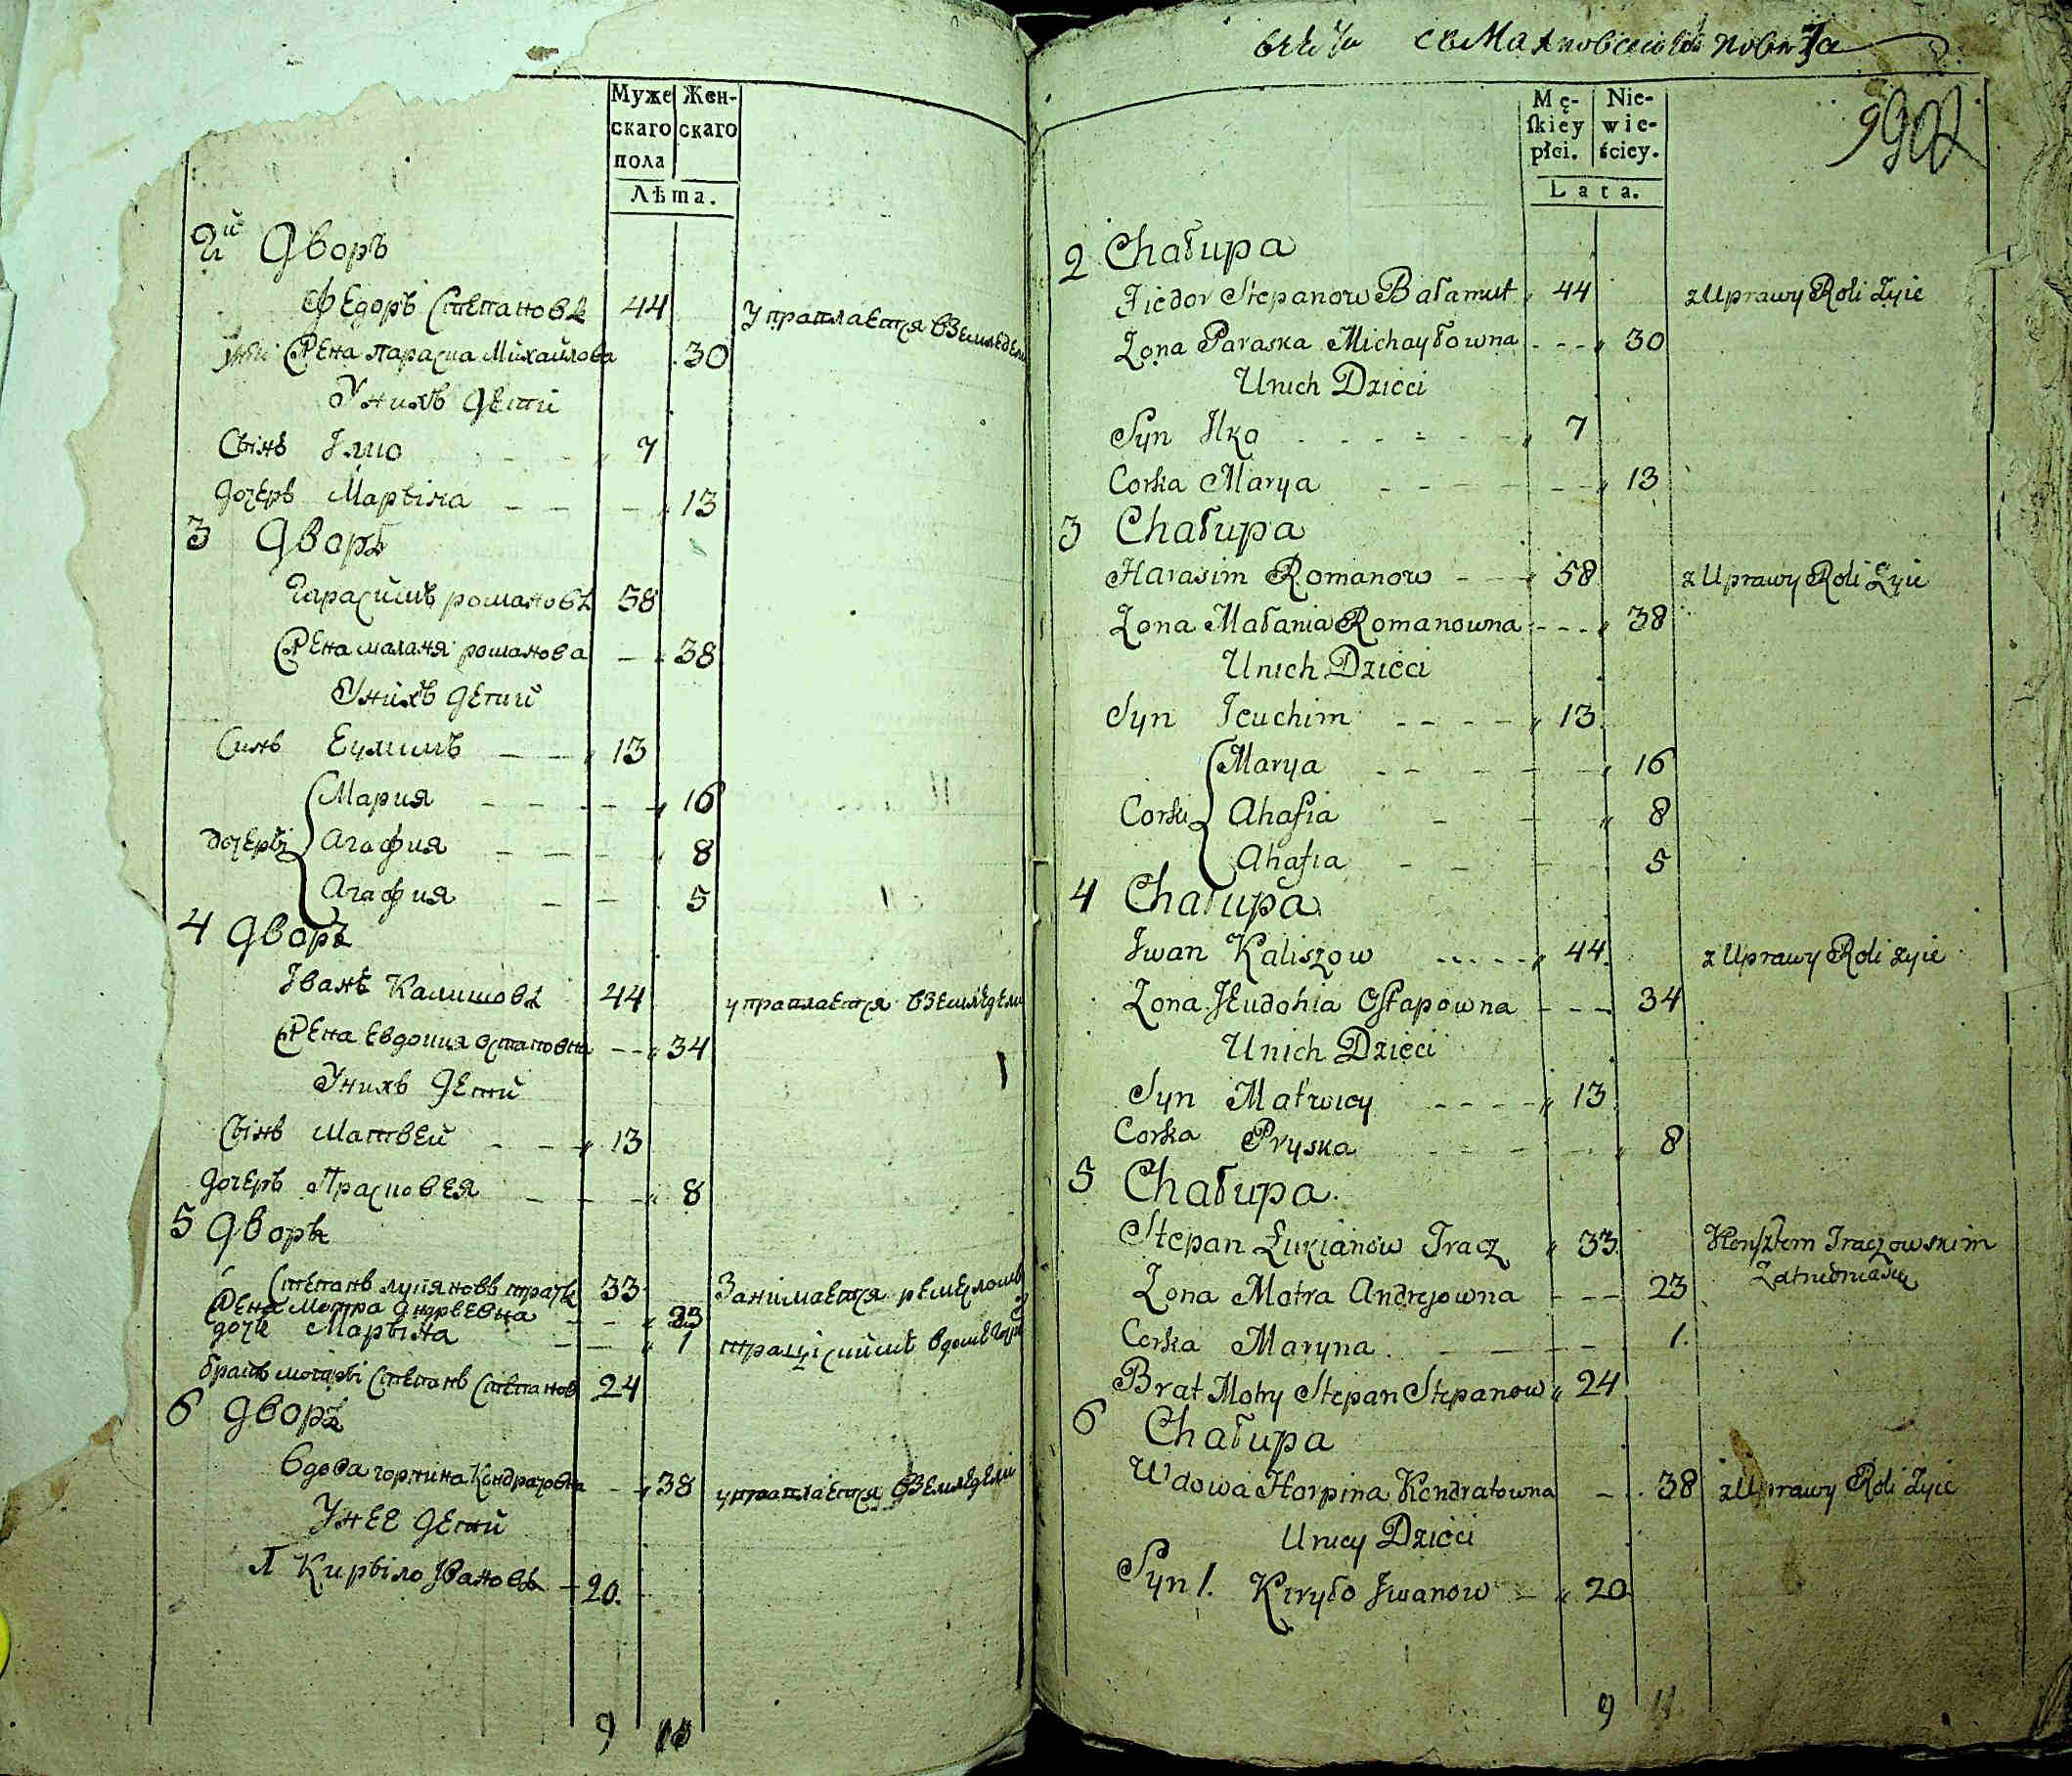 Муже Жен-
скаго скаго
пола
Лѣта.
2й Дворъ
Федоръ Степановъ 44 Упрапляется вземледели
Жена параска Михайлова 30
Унихъ дети
Сынъ Илко 7
дочеръ Марьіна 13
3 Дворъ
Гарасимъ романовъ 58
Жена маланя романова 38
Унихъ детий
Синъ Еухимъ 13
Мария 16
дочеры Агафия 8
Агафия 5
4 дворъ
Іванъ Калишовъ 44 упрапляется вземледели
Жена Евдокия Остаповна 34
Унихъ детий
Сынъ Матвей 13
дочеръ Прасковея 8
5 дворъ
Степанъ лукяновъ трачъ 33 Занимается ремесломъ
Жена Мотра Андреевна 23
дочъ Марьіна 1
братъ мотры Степанъ Степановъ 24
6 дворъ
Вдова горпина Кондратовна 38 упрапляется вземледели
У нее детий
Кирыло Ивановъ 20.
9
Mę- Nie-
ſkiey wie-
płci. ściey.
Lata.
2 Chałupa
Fiedor Stepanow Bałamut 44 z Uprawy Roli Żyie
Żona Paraska Michayłowna 30
Unich Dzieci
Syn Ilko 7
Corka Marya 13
3 Chałupa
Harasim Romanow 58 z Uprawy Roli Żyie
Żona Małania Romanowna 38
Unich Dzieci
Syn Jeuchim 13.
Marya 16
Corki Ahafia 8
Ahafia 5
4 Chałupa
Iwan Kaliszow 44. z Uprawy Roli żyie
Żona Jeudohia Ostapowna 34
Unich Dzieci
Syn Matwiey 13
Corka Pryska 8
5 Chałupa.
Stepan Łukianow Tracz 33. Kunsztem Traczowskim
Zatrudnia się
Żona Motra Andrejowna 23
Corka Maryna 1.
Brat Motry Stepan Stepanow 24
6
Chałupa
Wdowa Horpina Kondratowna 38 z Uprawy Roli Żyie
Uniey Dzieci
Syn 1. Kiryło Iwanow 20
9 11